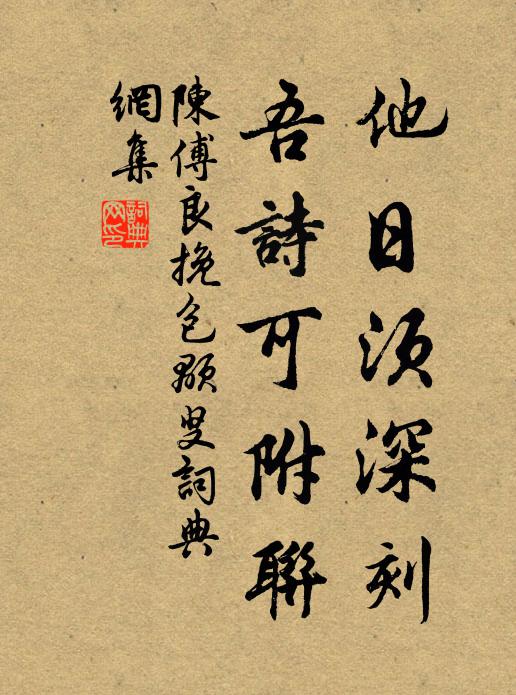 他日須深刻
吾詩可附聯
陳傅良挽包顒叟詞典
網集
詞典網印